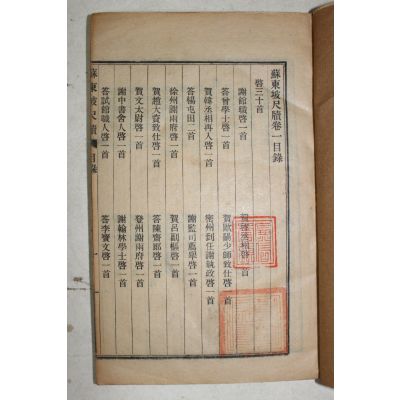 蘇東坡尺牘卷一目錄
啓三十首
謝館職啓一首
答曾學士啓一首
賀歐陽少師致仕啓一首
賀韓丞相再入啓一首
密州到任謝執政啓一首
答楊屯田二首
謝監司薦舉啓一首
徐州謝兩府啓一首
賀呂副樞啓一首
賀趙大資致仕啓一首
答陳齋郎啓一首
賀文太尉啓一首
登州謝兩府啓一首
謝中書舍人啓一首
謝翰林學士啓一首
答試館職人啓一首
答李寶文啓一首
蘇東坡尺牘 目錄